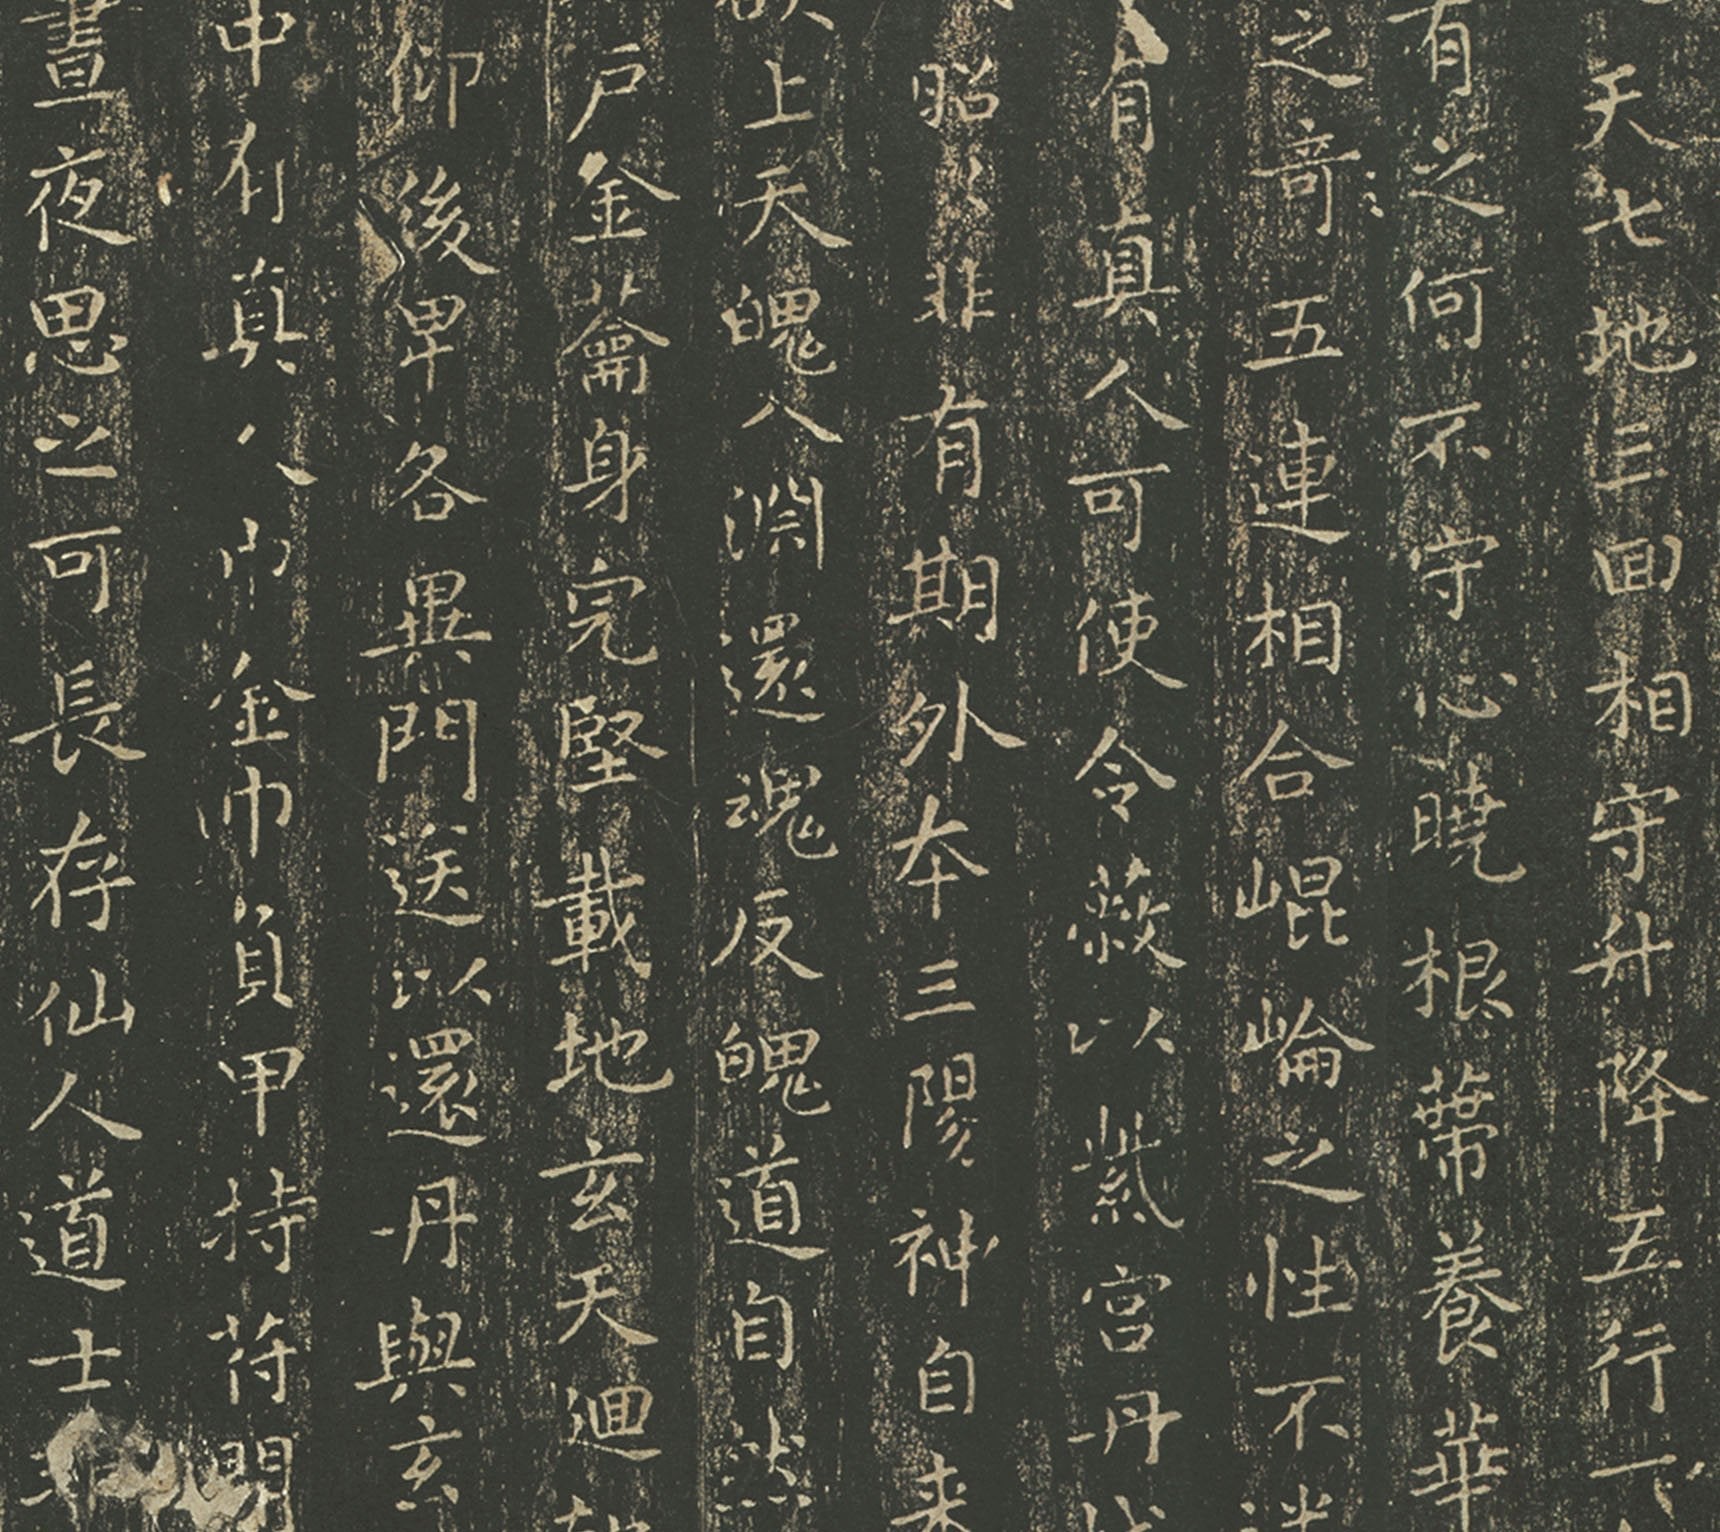 天七地三回相守升降五行下
有之何不守心曉根蔕養華
之奇五連相合崐崘之性不
有真人可使令蔽以紫宮丹
昭以非有期外本三陽神自来
上天魄八淵還魂反魄道自然
戶金蘥身完堅載地玄天迴
仰後卑各異門送以還丹與玄
中有真人巾金巾負甲持苻開
晝夜思之可長存仙人道士非